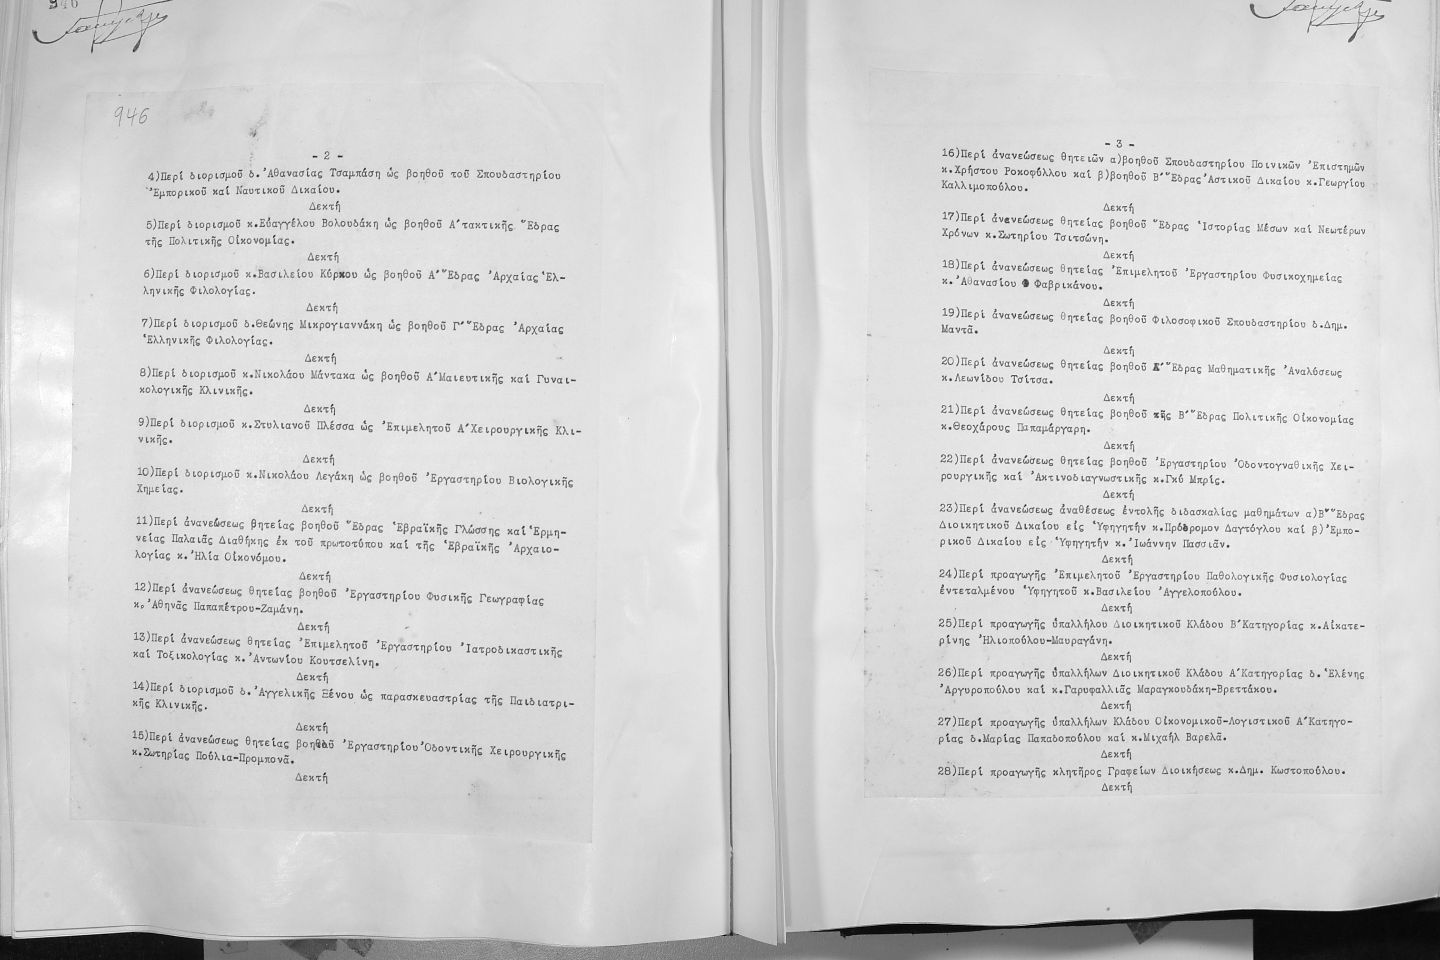 946
946
- 2 -
4)Περί διορισμοῦ δ.Ἀθανασίας Τσαμπάση ὡς βοηθοῦ τοῦ Σπουδαστηρίου
Ἐμπορικοῦ καί Ναυτικοῦ Δικαίου.
Δεκτή
5)Περί διορισμοῦ κ.Εὐαγγέλου Βολουδάκη ὡς βοηθοῦ Α΄τακτικῆς Ἕδρας
τῆς Πολιτικῆς Οἰκονομίας.
Δεκτή
6)Περί διορισμοῦ κ.Βασιλείου Κύρκου ὡς βοηθοῦ Α΄Ἕδρας Ἀρχαίας Ἑλ-
ληνικῆς Φιλολογίας.
Δεκτή
7)Περί διορισμοῦ δ.Θεώνης Μικρογιαννάκη ὡς βοηθοῦ Γ΄Ἕδρας Ἀρχαίας
Ἑλληνικῆς Φιλολογίας.
Δεκτή
8)Περί διορισμοῦ κ.Νικολάου Μάντακα ὡς βοηθοῦ Α΄Μαιευτικῆς καί Γυναι-
κολογικῆς Κλινικῆς.
Δεκτή
9)Περί διορισμοῦ κ.Στυλιανοῦ Πλέσσα ὡς Ἐπιμελητοῦ Α΄Χειρουργικῆς Κλι-
νικῆς.
Δεκτή
10)Περί διορισμοῦ κ.Νικολάου Λεγάκη ὡς βοηθοῦ Ἐργαστηρίου Βιολογικῆς
Χημείας.
Δεκτή
11)Περί ἀνανεώσεως θητείας βοηθοῦ Ἕδρας Ἑβραϊκῆς Γλώσσης καί Ἑρμη-
νείας Παλαιᾶς Διαθήκης ἐκ τοῦ πρωτοτύπου καί τῆς Ἑβραϊκῆς Ἀρχαιο-
λογίας κ.Ἠλία Οἰκονόμου.
Δεκτή
12)Περί ἀνανεώσεως θητείας βοηθοῦ Ἐργαστηρίου Φυσικῆς Γεωγραφίας
κ.Ἀθηνᾶς Παπαπέτρου-Ζαμάνη.
Δεκτή
13)Περί ἀνανεώσεως θητείας Ἐπιμελητοῦ Ἐργαστηρίου Ἰατροδικαστικῆς
καί Τοξικολογίας κ.Ἀντωνίου Κουτσελίνη.
Δεκτή
14)Περί διορισμοῦ δ.Ἀγγελικῆς Ξένου ὡς παρασκευαστρίας τῆς Παιδιατρι-
κῆς Κλινικῆς.
Δεκτή
15)Περί ἀνανεώσεως θητείας βοηθοῦ Ἐργαστηρίου Ὀδοντικῆς Χειρουργικῆς
κ.Σωτηρίας Πούλια-Προμπονᾶ.
Δεκτή
- 3 -
16)Περί ἀνανεώσεως θητειῶν α)βοηθοῦ Σπουδαστηρίου Ποινικῶν Ἐπιστημῶν
κ.Χρήστου Ροκοφύλλου καί β)βοηθοῦ Β΄Ἕδρας Ἀστικοῦ Δικαίου κ.Γεωργίου
Καλλιμοπούλου.
Δεκτή
17)Περί ἀνανεώσεως θητείας βοηθοῦ Ἕδρας Ἱστορίας Μέσων καί Νεωτέρων
Χρόνων κ.Σωτηρίου Τσιτσώνη.
Δεκτή
18)Περί ἀνανεώσεως θητείας Ἐπιμελητοῦ Ἐργαστηρίου Φυσικοχημείας
κ.Ἀθανασίου Φαβρικάνου.
Δεκτή
19)Περί ἀνανεώσεως θητείας βοηθοῦ Φιλοσοφικοῦ Σπουδαστηρίου δ.Δημ.
Μαντᾶ.
Δεκτή
20)Περί ἀνανεώσεως θητείας βοηθοῦ Α΄Ἕδρας Μαθηματικῆς Ἀναλύσεως
κ.Λεωνίδου Τσίτσα.
Δεκτή
21)Περί ἀνανεώσεως θητείας βοηθοῦ τῆς Β΄Ἕδρας Πολιτικῆς Οἰκονομίας
κ.Θεοχάρους Παπαμάργαρη.
Δεκτή
22)Περί ἀνανεώσεως θητείας βοηθοῦ Ἐργαστηρίου Ὀδοντογναθικῆς Χει-
ρουργικῆς καί Ἀκτινοδιαγνωστικῆς κ.Γκύ Μπρίς.
Δεκτή
23)Περί ἀνανεώσεως ἀναθέσεως ἐντολῆς διδασκαλίας μαθημάτων α)Β΄Ἕδρας
Διοικητικοῦ Δικαίου εἰς Ὑφηγητήν κ.Πρόδρομον Δαγτόγλου καί β)Ἐμπο-
ρικοῦ Δικαίου εἰς Ὑφηγητήν κ.Ἰωάννην Πασσιᾶν.
Δεκτή
24)Περί προαγωγῆς Ἐπιμελητοῦ Ἐργαστηρίου Παθολογικῆς Φυσιολογίας
ἐντεταλμένου Ὑφηγητοῦ κ.Βασιλείου Ἀγγελοπούλου.
Δεκτή
25)Περί προαγωγῆς ὑπαλλήλου Διοικητικοῦ Κλάδου Β΄Κατηγορίας κ.Αἰκατε-
ρίνης Ἠλιοπούλου-Μαυραγάνη.
Δεκτή
26)Περί προαγωγῆς ὑπαλλήλων Διοικητικοῦ Κλάδου Α΄Κατηγορίας δ.Ἑλένης
Ἀργυροπούλου καί κ.Γαρυφαλλιᾶς Μαραγκουδάκη-Βρεττάκου.
Δεκτή
27)Περί προαγωγῆς ὑπαλλήλων Κλάδου Οἰκονομικοῦ-Λογιστικοῦ Α΄Κατηγο-
ρίας δ.Μαρίας Παπαδοπούλου καί κ.Μιχαήλ Βαρελᾶ.
Δεκτή
28)Περί προαγωγῆς κλητῆρος Γραφείων Διοικήσεως κ.Δημ. Κωστοπούλου.
Δεκτή